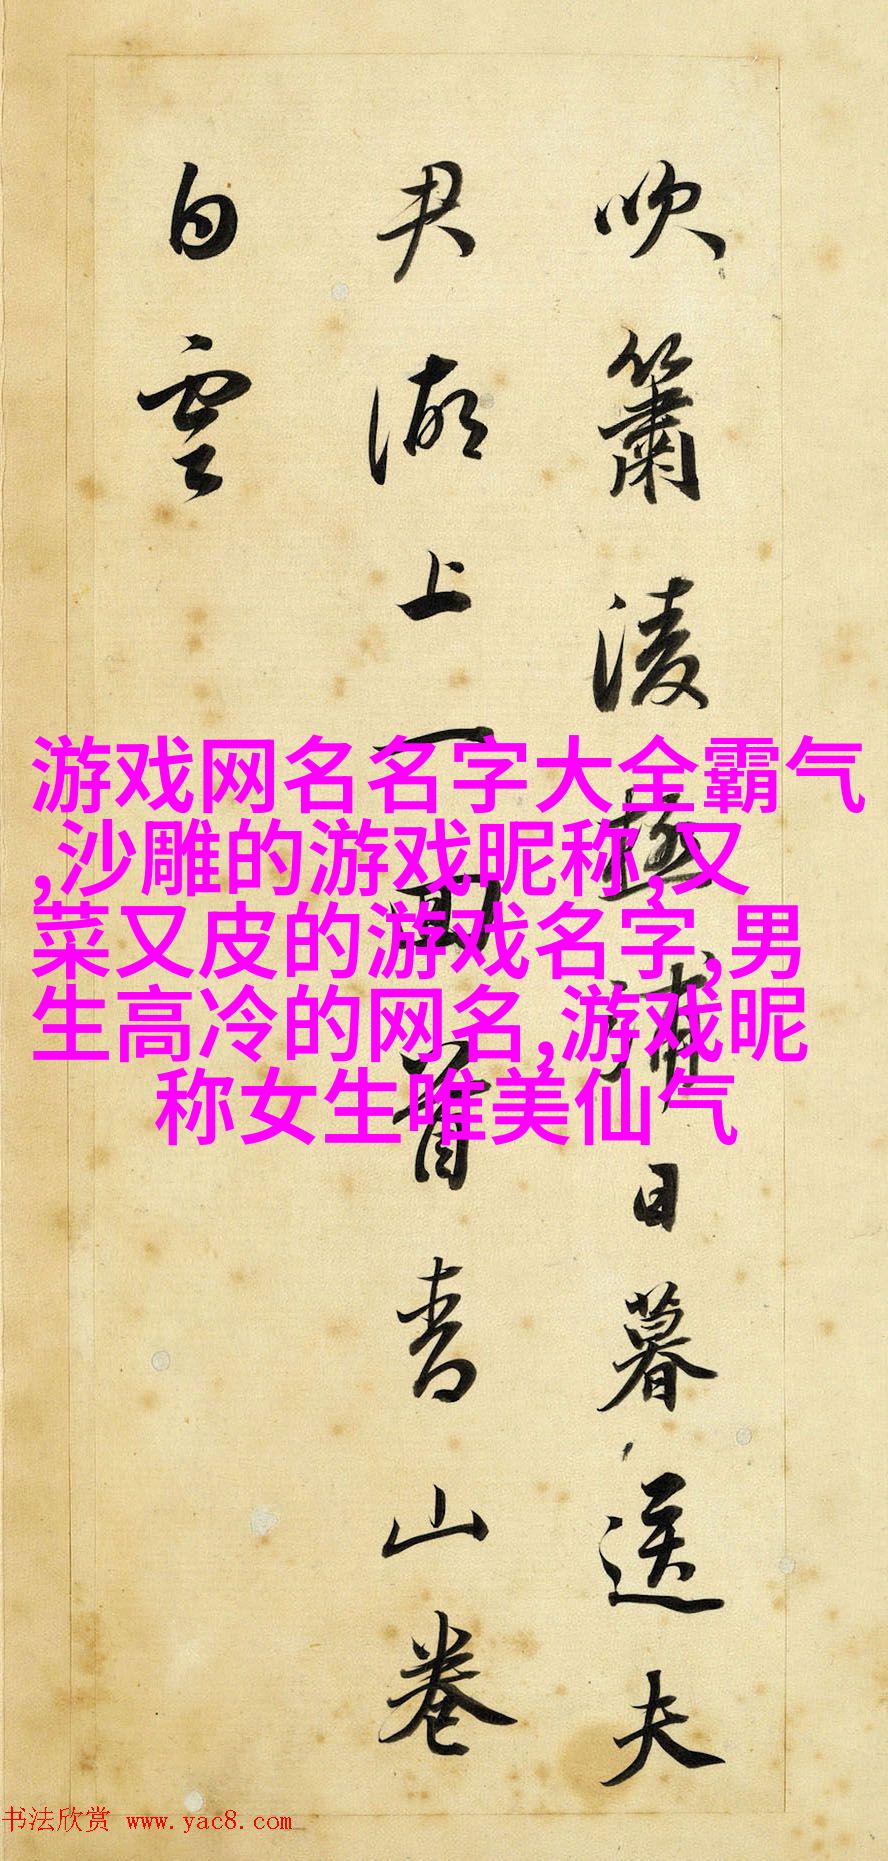 吹簫凌極浦日暮送夫
君湖上一回首青山卷
白雲
游戏网名名字大全霸气
,沙雕的游戏昵称,又
菜又皮的游戏名字,男
生高冷的网名,游戏昵
称女生唯美仙气
书法欣赏 www.yac8.com